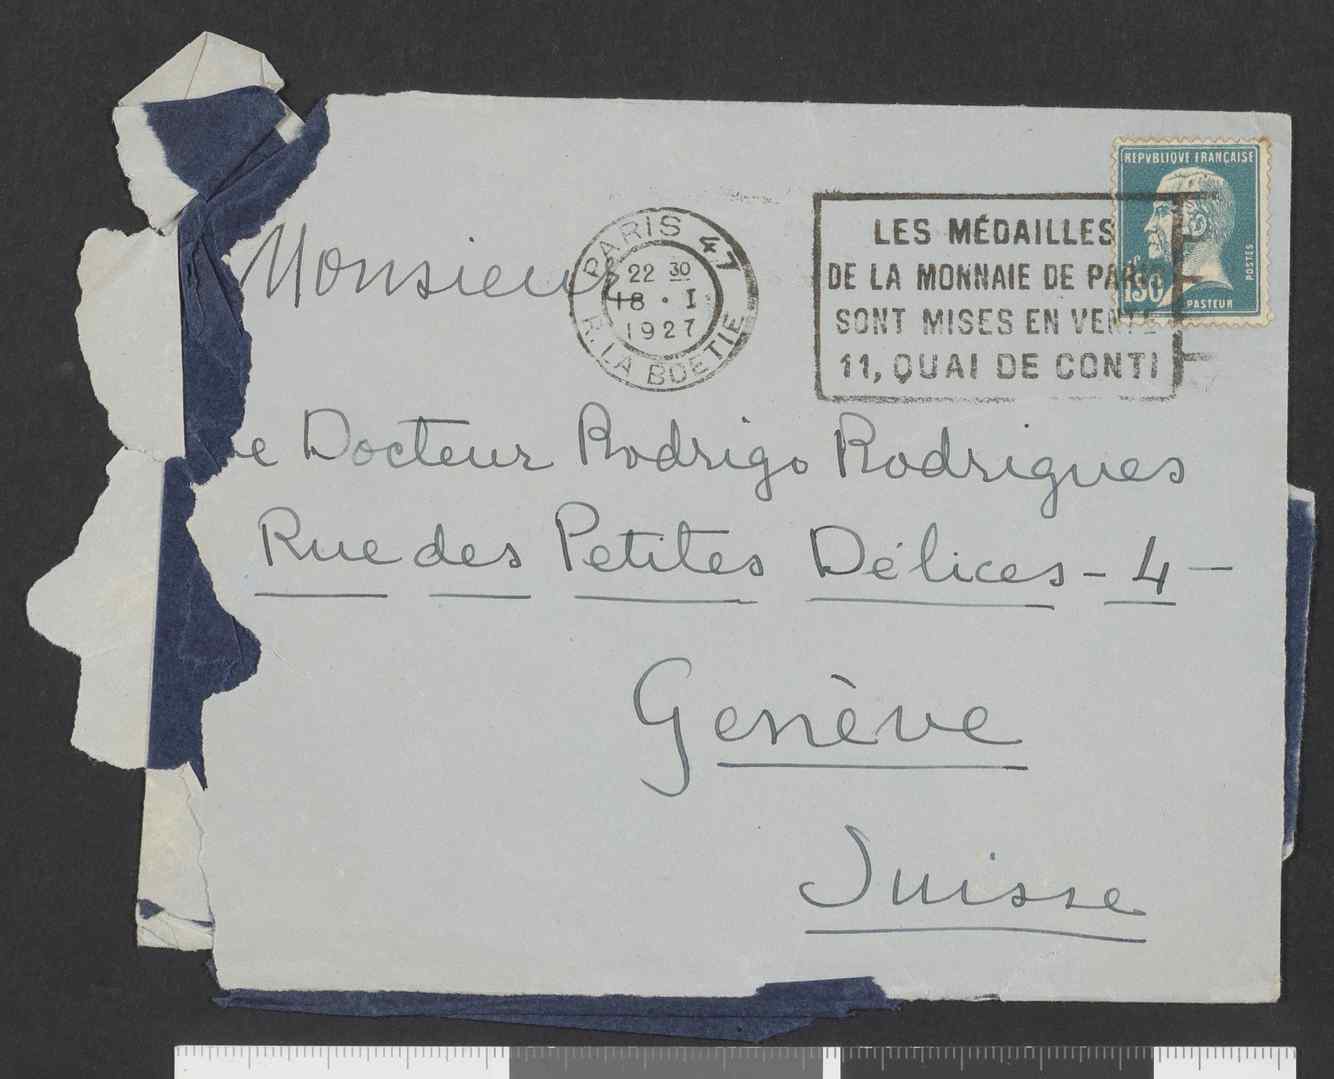 REPVBLIQVE FRANÇAISE
POSTES
1F50
PASTEUR
PARIS 47
22 30
18 · I
1927
R. LA BOETIE
LES MÉDAILLES
DE LA MONNAIE DE PARIS
SONT MISES EN VENTE
11, QUAI DE CONTI
Monsieur
e Docteur Rodrigo Rodrigues
Rue des Petites Délices - 4 -
Genève
Suisse